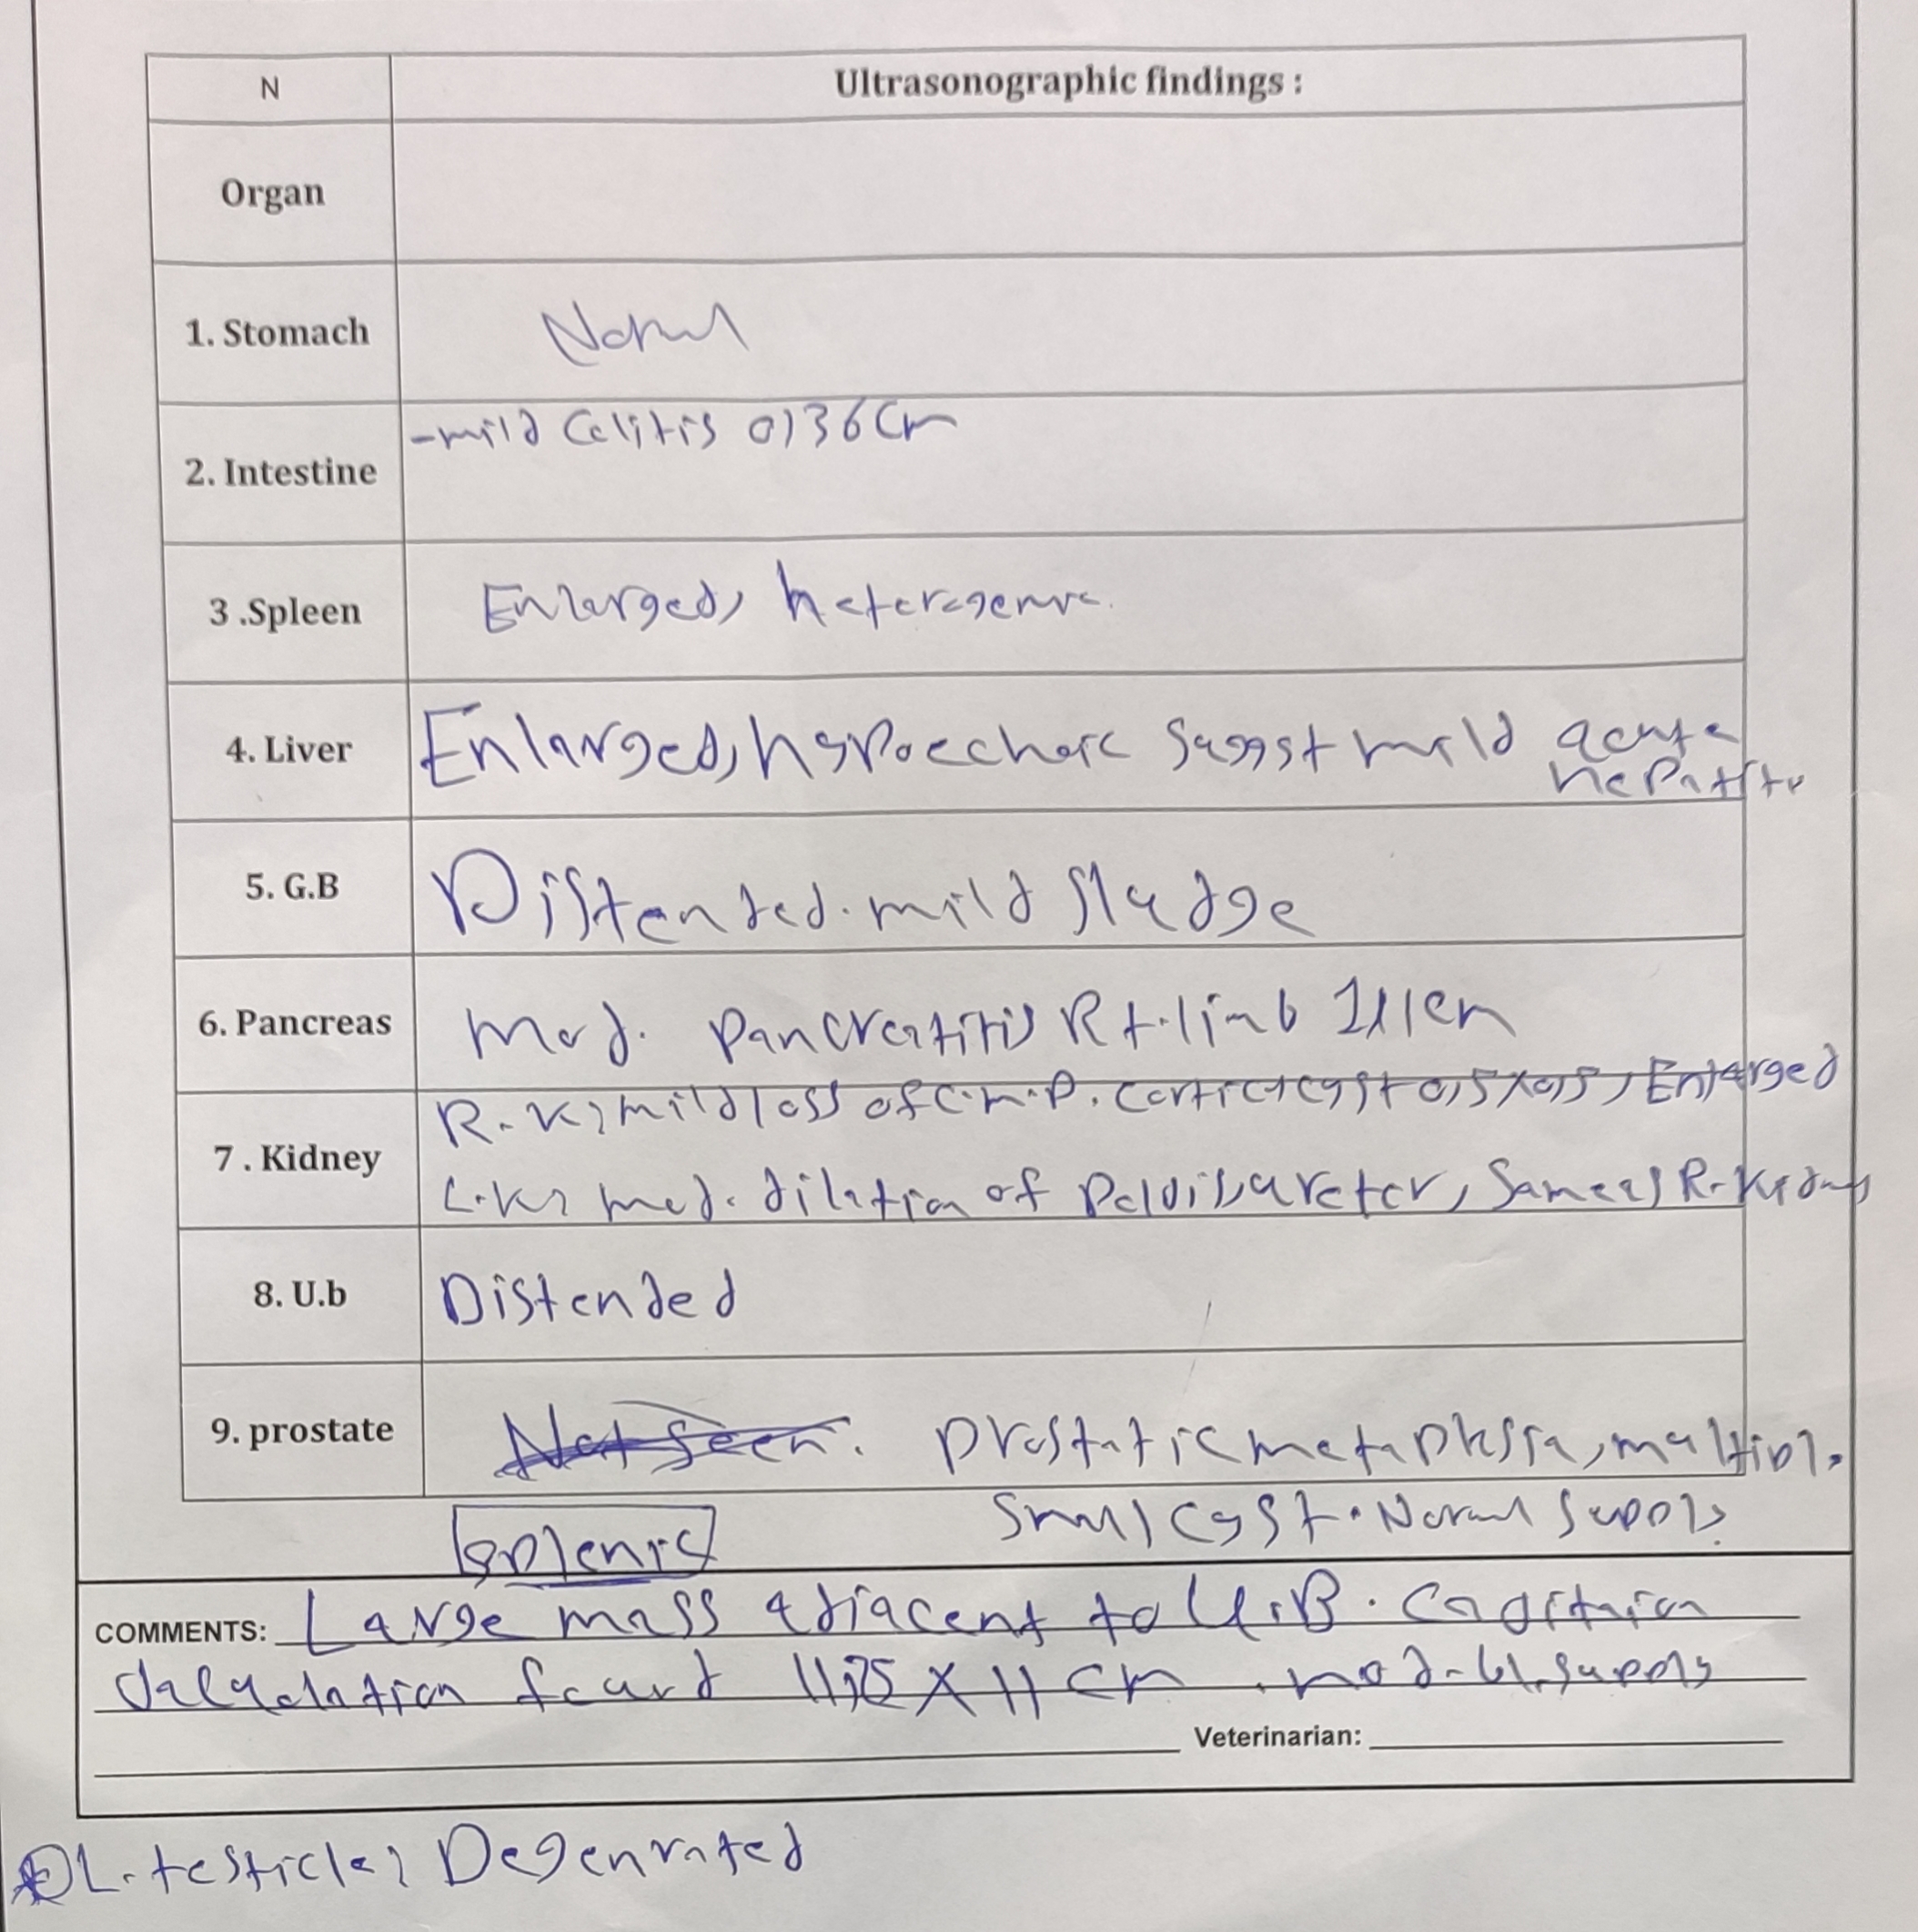 N Ultrasonographic findings :
Organ
1. Stomach Normal
2. Intestine -mild Colitis 0,36 Cm
3 .Spleen Enlarged, heterogenic.
4. Liver Enlarged, hypoechoic suggst mild acute
hepatitis
5. G.B Distended. mild sludge
6. Pancreas Mod. pancreatitis Rt. limb 1,1 cm
7 . Kidney R.K; mild loss of C.M.D. cortical cyst 0,5 X 0,5, Enlarged
L.K; mod. dilation of Pelvis, ureter, Same as R. Kidney
8. U.b Distended
9. prostate Not seen. prostatic metaplasia, multipl.
small cyst. Normal supply.
splenic
COMMENTS: Large mass adjacent to U.B.
found 11,75 X 11 cm. mod. bl. supply
Veterinarian:
L. testicle; Degenrated